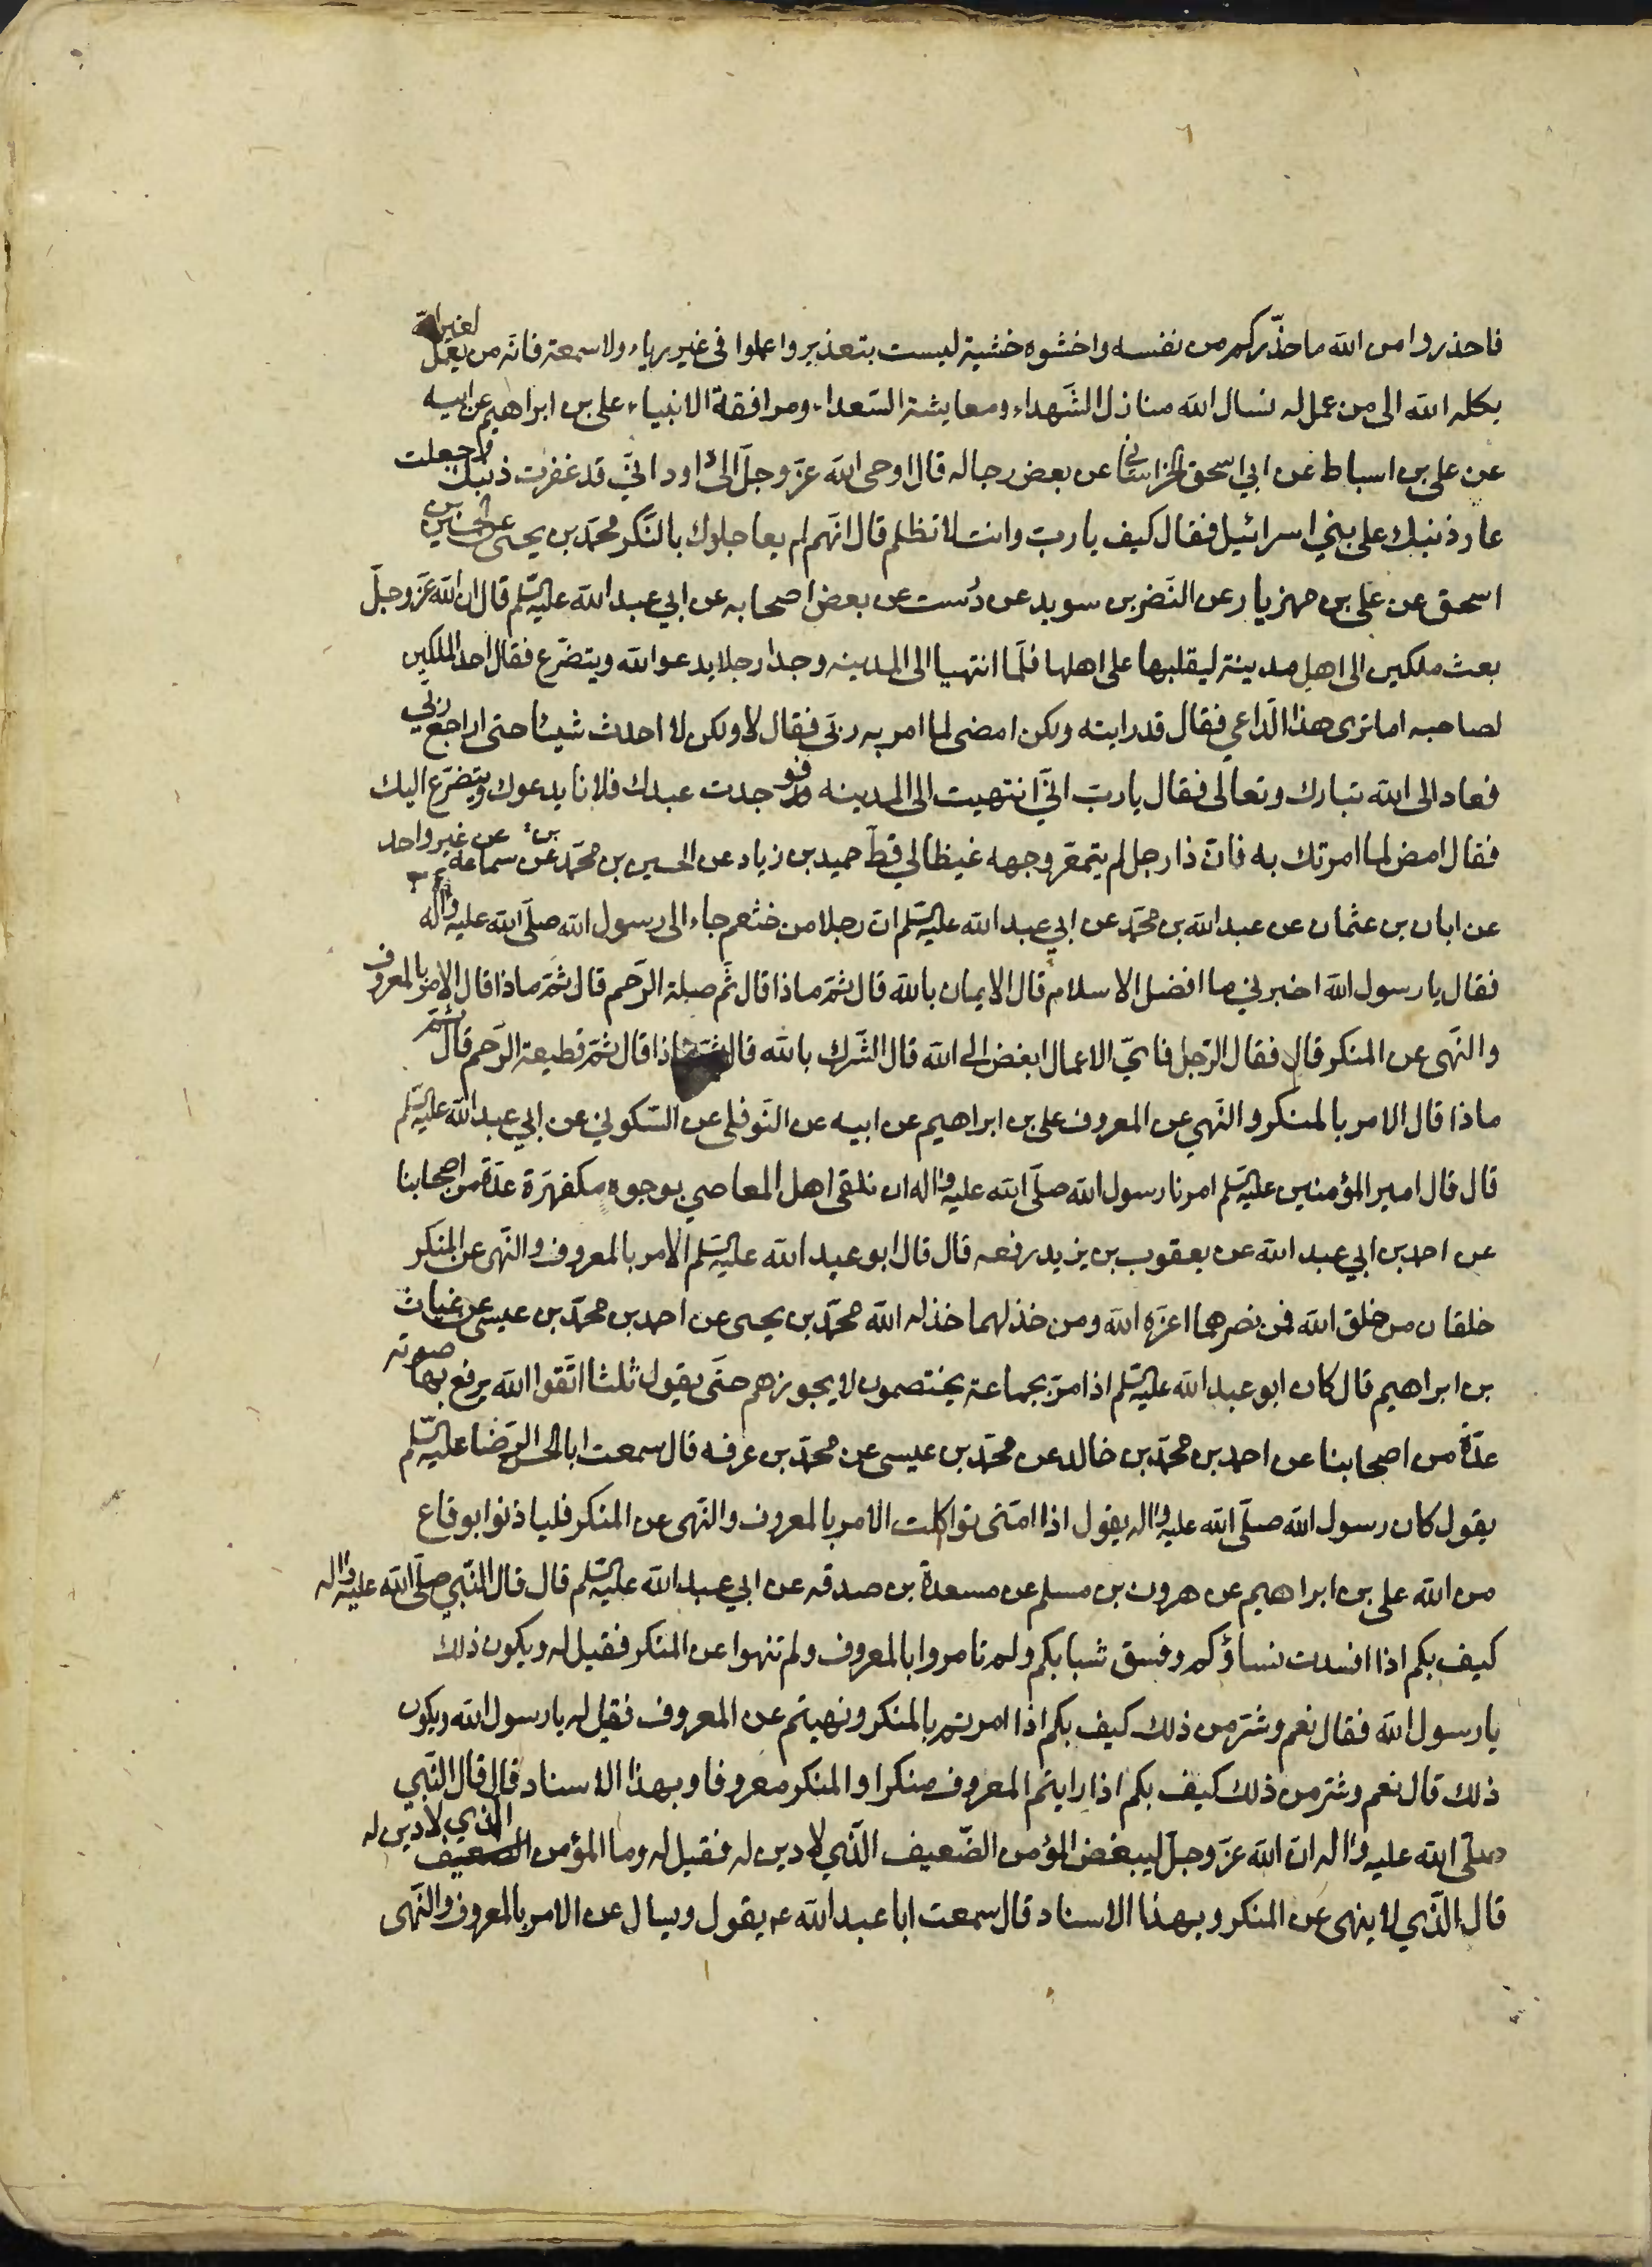 فاحذروا من الله ما حذّركم من نفسه واخشوه خشية ليست بتعذير واعملوا في غير رياء ولا سمعة فانّه من يعمل لغير الله
يكله الله الى من عمل له نسال الله منازل الشّهداء ومعايشة السّعداء ومرافقة الانبياء علي بن ابراهيم عن ابيه
عن علي بن اسباط عن ابي اسحق الخراساني عن بعض رجاله قال اوحى الله عزّ وجلّ الى داود انّي قد غفرت ذنبك وجعلت
عار ذنبك على بني اسرائيل فقال كيف يا ربّ وانت لا تظلم قال انّهم لم يعاجلوك بالنّكر محمّد بن يحيى عن الحسين بن
اسحق عن علي بن مهزيار عن النّضر بن سويد عن دُرست عن بعض اصحابه عن ابي عبد الله عليه السّلم قال ان الله عزّ وجلّ
بعث ملكين الى اهل مدينة ليقلبها على اهلها فلمّا انتهيا الى المدينه وجدا رجلا يدعو الله ويتضرّع فقال احد الملكين
لصاحبه اما ترى هذا الدّاعي فقال قد رايته ولكن امضى لما امر به ربّي فقال لا ولكن لا احدث شيئا حتى اراجع ربّي
فعاد الى الله تبارك وتعالى فقال يا ربّ انّي انتهيت الى المدينه فوجدت عبدك فلانا يدعوك ويتضرّع اليك
فقال امض لما امرتك به فانّ ذا رجل لم يتمعّر وجهه غيظا لي قطّ حميد بن زياد عن الحسين بن محمّد بن سماعة عن غير واحد
عن ابان بن عثمان عن عبد الله بن محمّد عن ابي عبد الله عليه السّلم انّ رجلا من خثعم جاء الى رسول الله صلّى الله عليه واله
فقال يا رسول الله اخبرني ما افضل الاسلام قال الايمان بالله قال ثمّ ماذا قال ثمّ صلة الرّحم قال ثمّ ماذا قال الامر بالمعروف
والنّهى عن المنكر قال فقال الرّجل فايّ الاعمال ابغض الى الله قال الشّرك بالله قال ثمّ ماذا قال ثمّ قطيعة الرّحم قال ثمّ
ماذا قال الامر بالمنكر والنّهي عن المعروف علي بن ابراهيم عن ابيه عن النّوفلي عن السّكوني عن ابي عبد الله عليه السّلم
قال قال امير المؤمنين عليه السّلم امرنا رسول الله صلّى الله عليه واله ان نلقى اهل المعاصي بوجوه مكفهرّة عدّة من اصحابنا
عن احمد بن ابي عبد الله عن يعقوب بن يزيد رفعه قال قال ابو عبد الله عليه السّلم الامر بالمعروف والنّهى عن المنكر
خلقان من خلق الله فمن نصرهما اعزّه الله ومن خذلهما خذله الله محمّد بن يحيى عن احمد بن محمّد بن عيسى عن غياث
بن ابراهيم قال كان ابو عبد الله عليه السّلم اذا مرّ بجماعة يختصمون لا يجوزهم حتّى يقول ثلثا اتّقوا الله يرفع بها صوته
عدّة من اصحابنا عن احمد بن محمّد بن خالد عن محمّد بن عيسى عن محمّد بن عرفه قال سمعت ابا الحسن الرّضا عليه السّلم
يقول كان رسول الله صلّى الله عليه واله يقول اذا امّتي تواكلت الامر بالمعروف والنّهى عن المنكر فلياذنوا بوقاع
من الله علي بن ابراهيم عن هرون بن مسلم عن مسعدة بن صدقه عن ابي عبد الله عليه السّلم قال قال النّبي صلّى الله عليه واله
كيف بكم اذا افسدت نساؤكم وفسق شبابكم ولم تامروا بالمعروف ولم تنهوا عن المنكر فقيل له ويكون ذلك
يا رسول الله فقال نعم وشرّ من ذلك كيف بكم اذا امرتم بالمنكر ونهيتم عن المعروف فقيل له يا رسول الله ويكون
ذلك قال نعم وشرّ من ذلك كيف بكم اذا رايتم المعروف منكرا والمنكر معروفا وبهذا الاسناد قال قال النّبي
صلّى الله عليه واله انّ الله عزّ وجلّ ليبغض المؤمن الضّعيف الّذي لا دين له فقيل له وما المؤمن الضعيف الذي لا دين له
قال الّذي لا ينهى عن المنكر وبهذا الاسناد قال سمعت ابا عبد الله عم يقول وسال عن الامر بالمعروف والنّهى